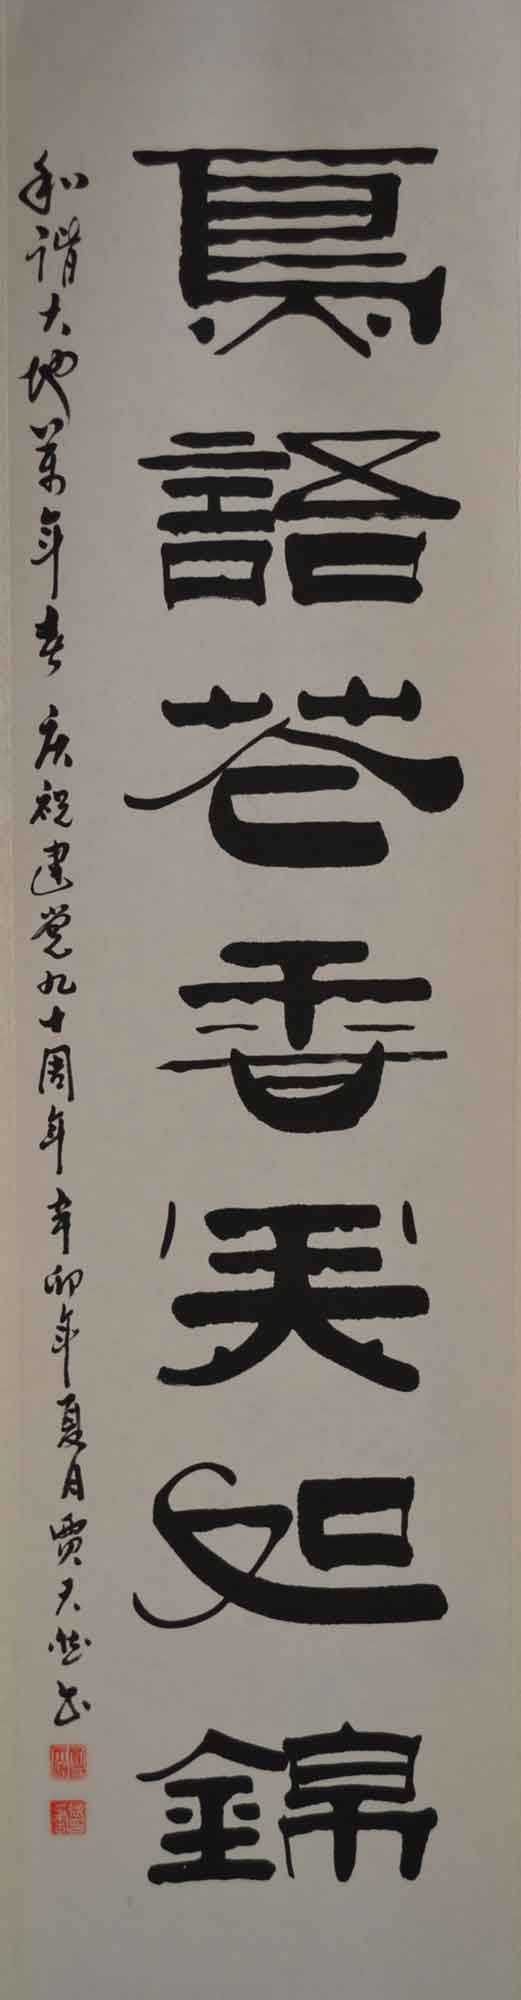 鳥語花香美如錦
和谐大地萬年春 庆祝建党九十周年 辛卯年夏月贾书